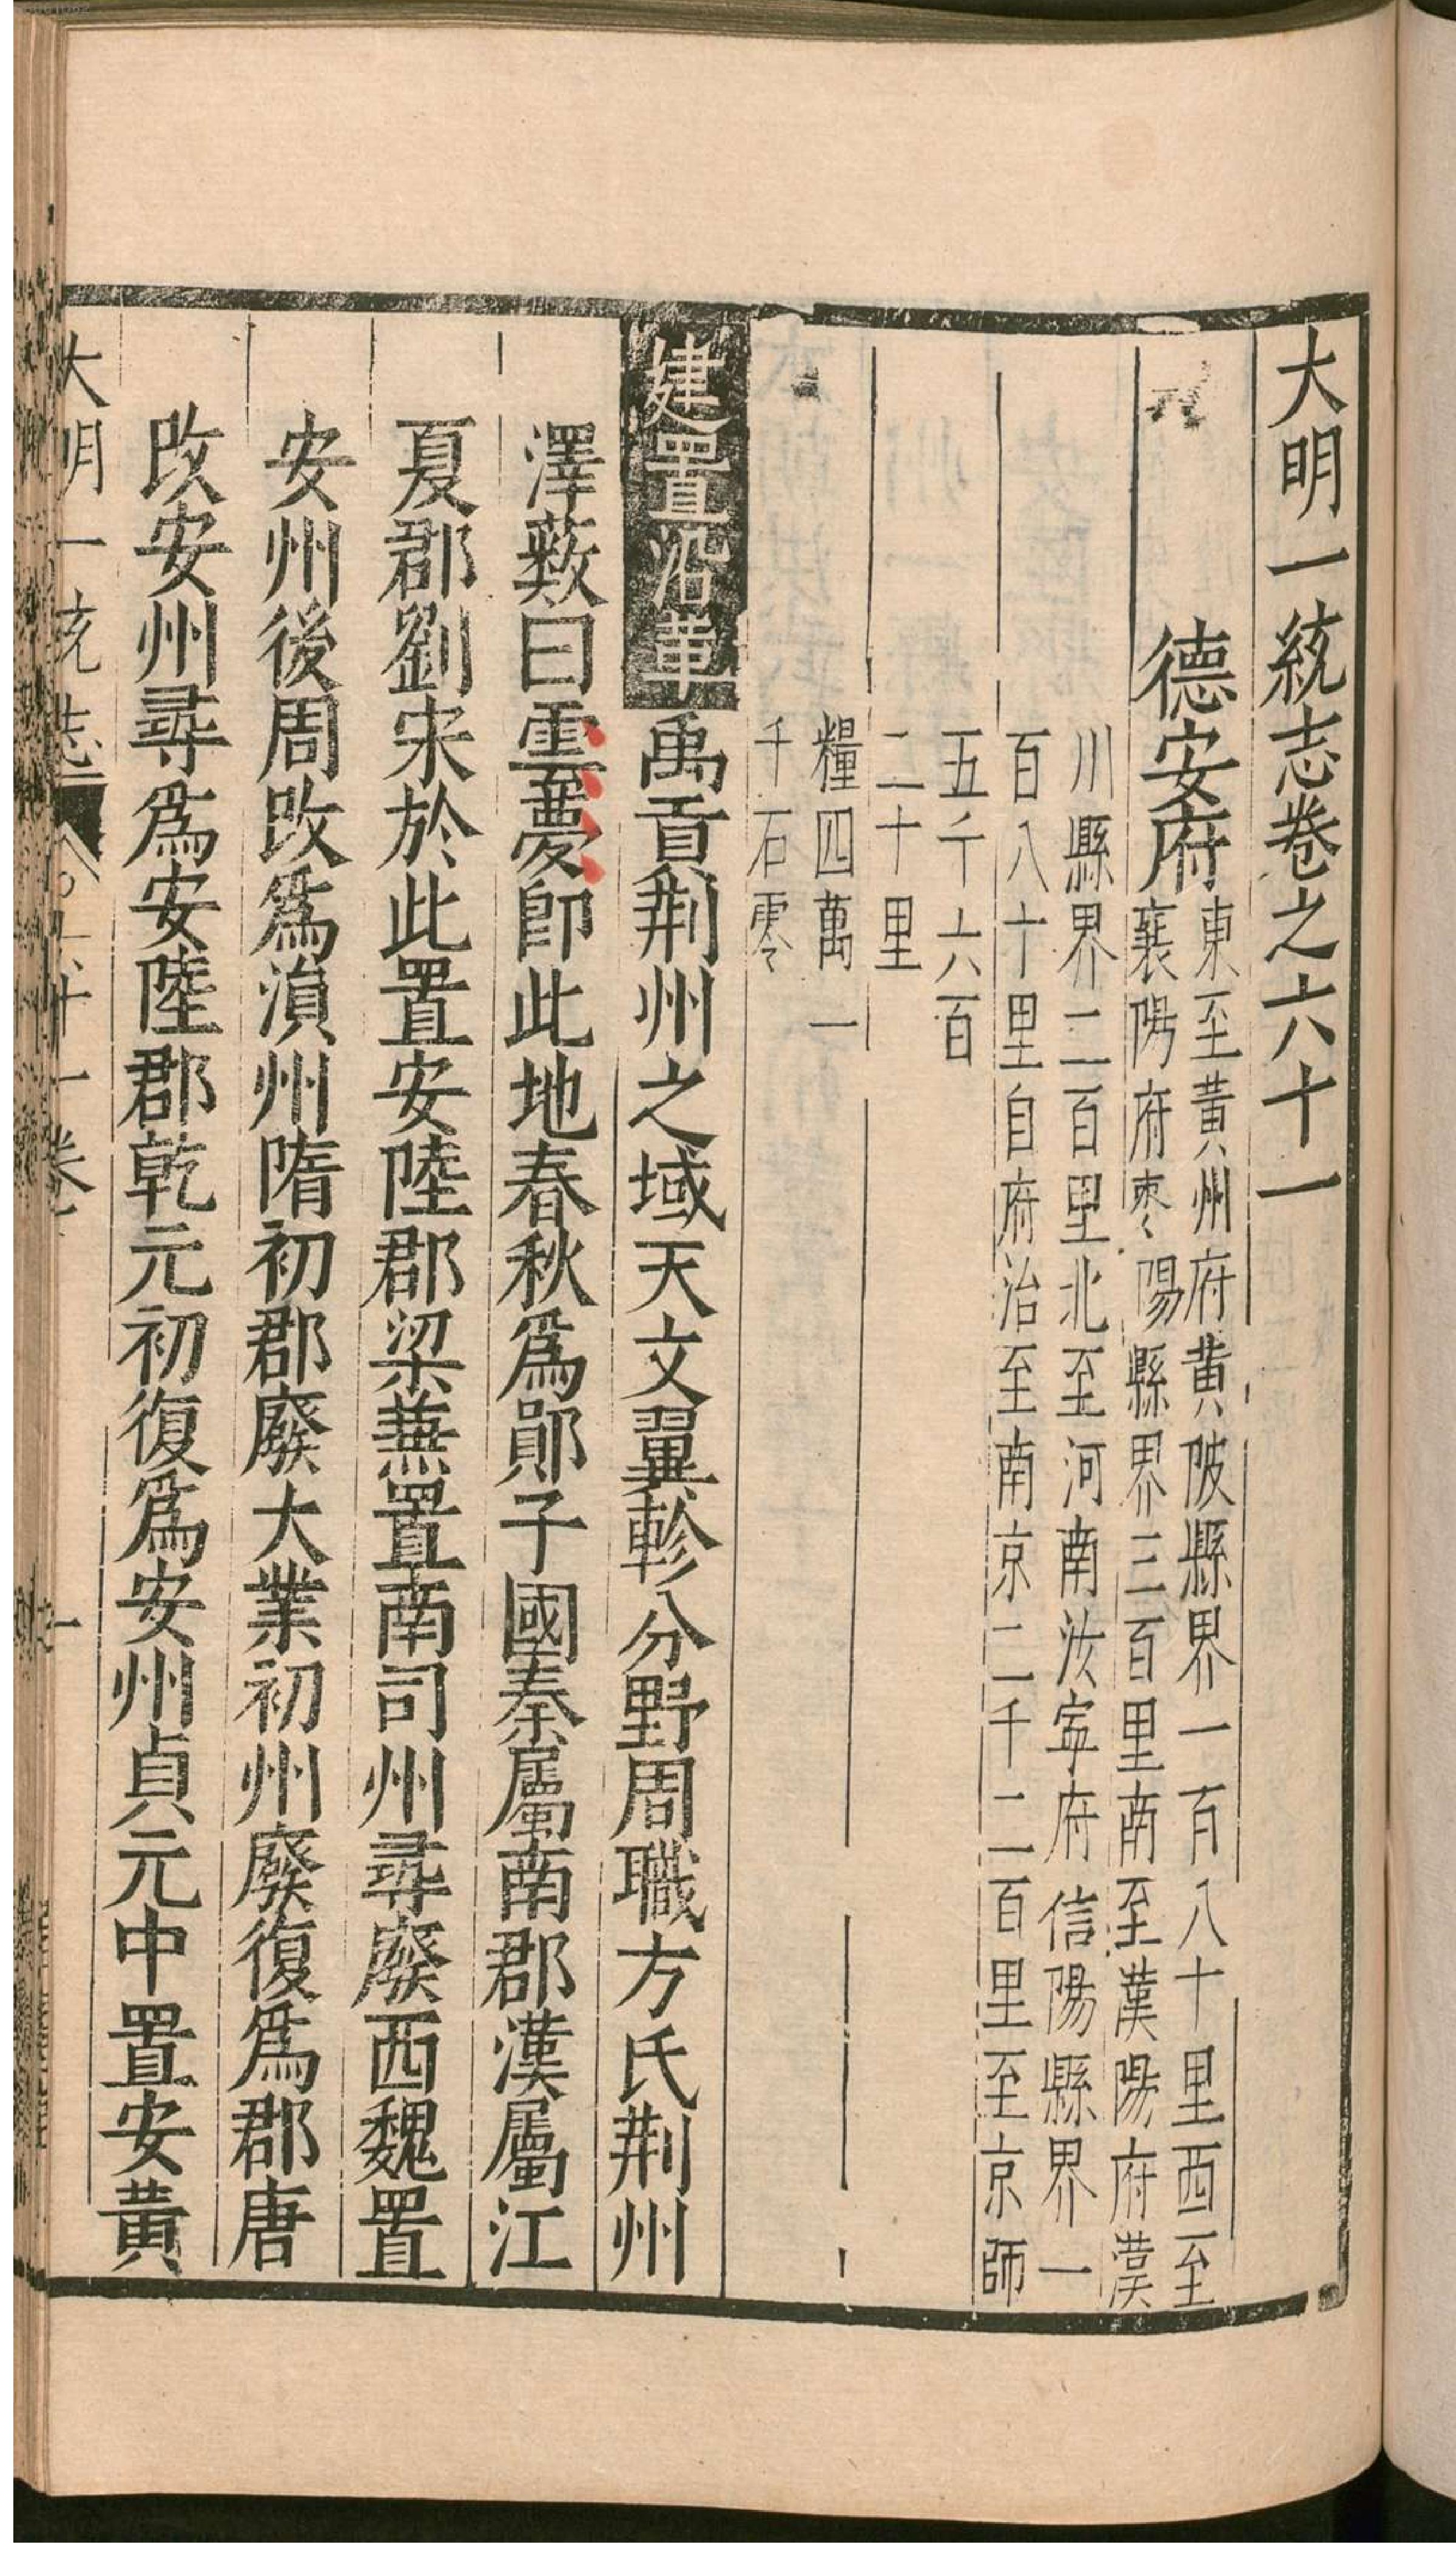 大明一統志卷之六十一
德安府
東至黃州府黃陂縣界一百八十里西至
襄陽府枣陽縣界三百里南至漢陽府漢
川縣界二百里北至河南汝寧府信陽縣界一
百八十里自府治至南京二千二百里至京師
五千六百
二十里
糧四萬一
千石零
建置沿革禹貢荆州之域天文翼軫分野周職方氏荆州
澤藪曰雲夢即此地春秋爲鄖子國秦屬南郡漢屬江
夏郡劉宋於此置安陸郡梁兼置南司州尋廢西魏置
安州後周改爲溳州隋初郡廢大業初州廢復爲郡唐
改安州尋爲安陸郡乾元初復爲安州貞元中置安黃
大明一统志 六十一卷 一